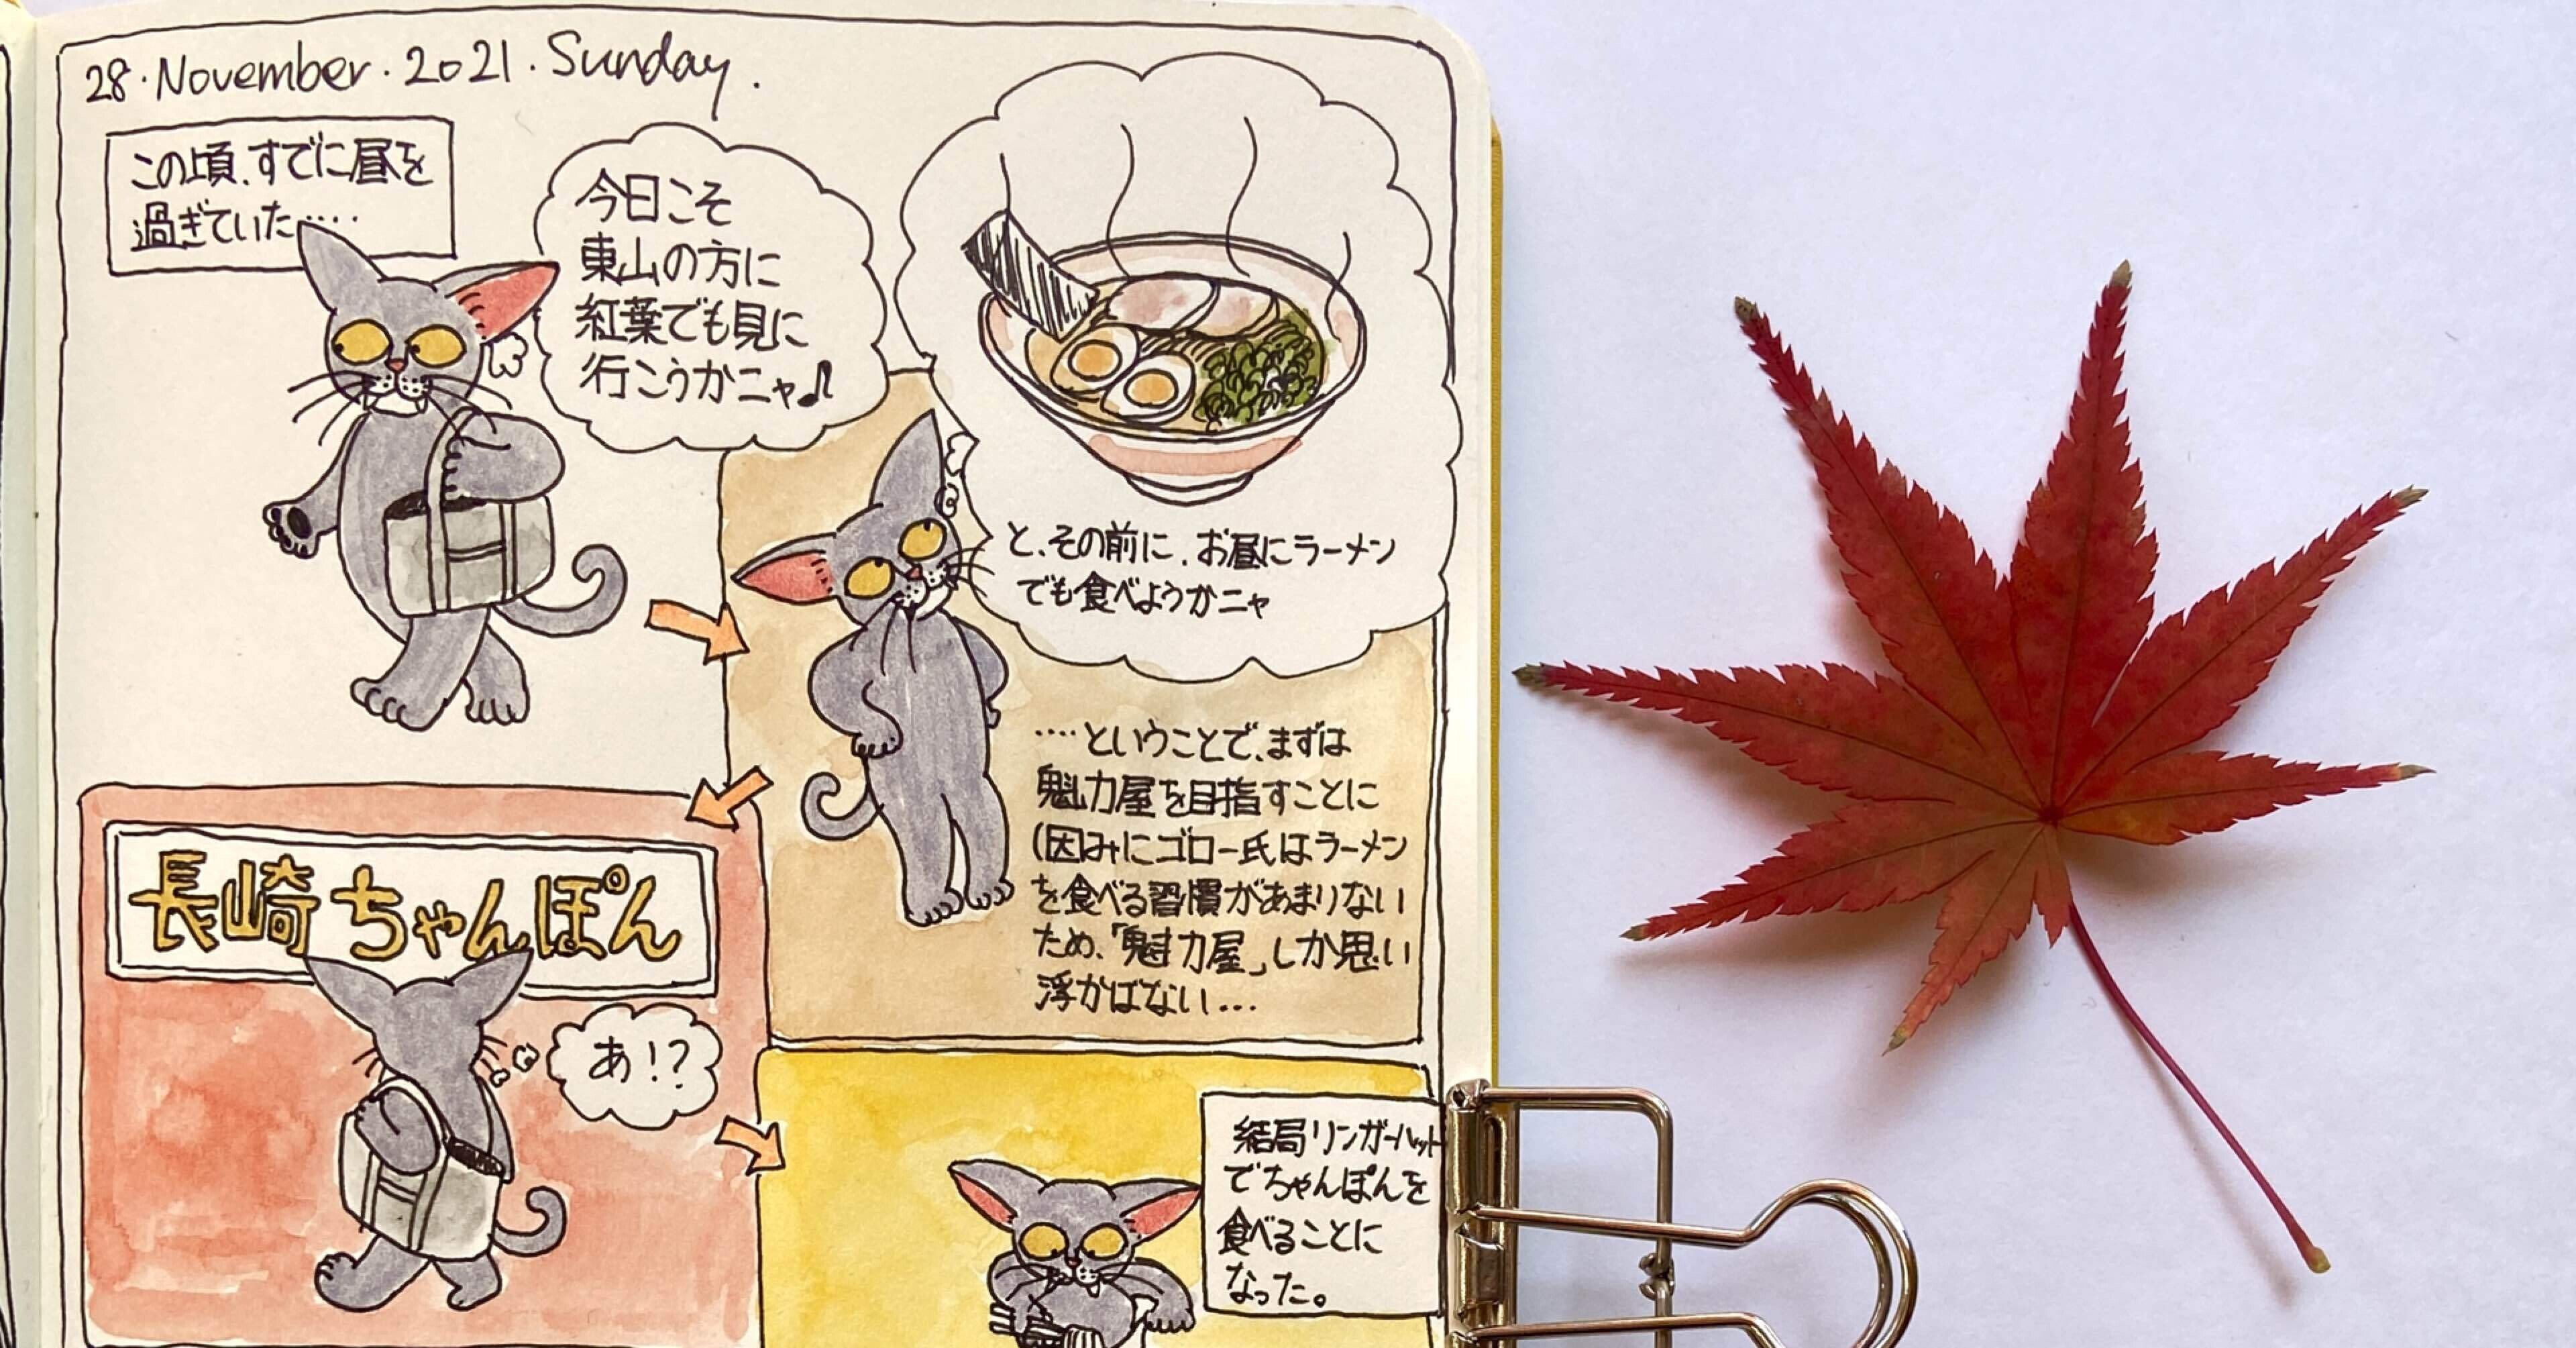 28. November. 2021. Sunday.
この頃、すでに昼を
過ぎていた‥‥
今日こそ
東山の方に
紅葉でも見に
行こうかニャ♪
と、その前に、お昼にラーメン
でも食べようかニャ
‥‥ということで、まずは
魁力屋を目指すことに
(因みにゴロー氏はラーメン
を食べる習慣があまりない
ため、「魁力屋」しか思い
浮かばない…
長崎ちゃんぽん
あ!?
結局リンガーハット
でちゃんぽんを
食べることに
なった。